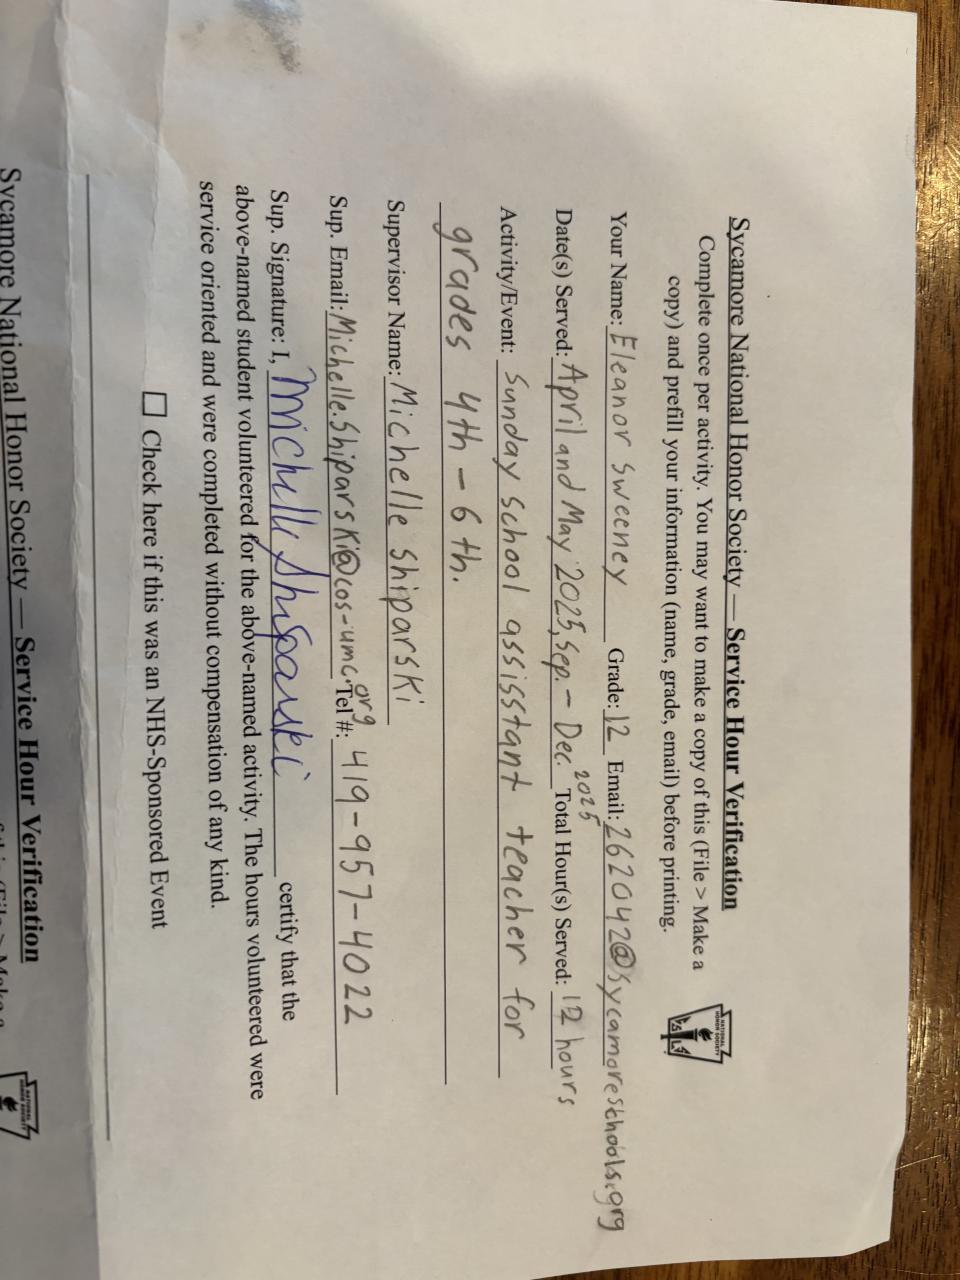 Sycamore National Honor Society — Service Hour Verification
Complete once per activity. You may want to make a copy of this (File > Make a
copy) and prefill your information (name, grade, email) before printing.
NATIONAL
HONOR SOCIETY
Your Name: Eleanor Sweeney Grade: 12 Email: 262042@sycamoreschools.org
Date(s) Served: April and May 2025, Sep. - Dec. 2025 Total Hour(s) Served: 12 hours
Activity/Event: Sunday School assisstant teacher for
grades 4th - 6th.
Supervisor Name: Michelle Shiparski
Sup. Email: Michelle.Shiparski@cos-umc.org Tel #: 419-957-4022
Sup. Signature: I, Michelle Shiparski certify that the
above-named student volunteered for the above-named activity. The hours volunteered were
service oriented and were completed without compensation of any kind.
☐ Check here if this was an NHS-Sponsored Event
Sycamore National Honor Society — Service Hour Verification